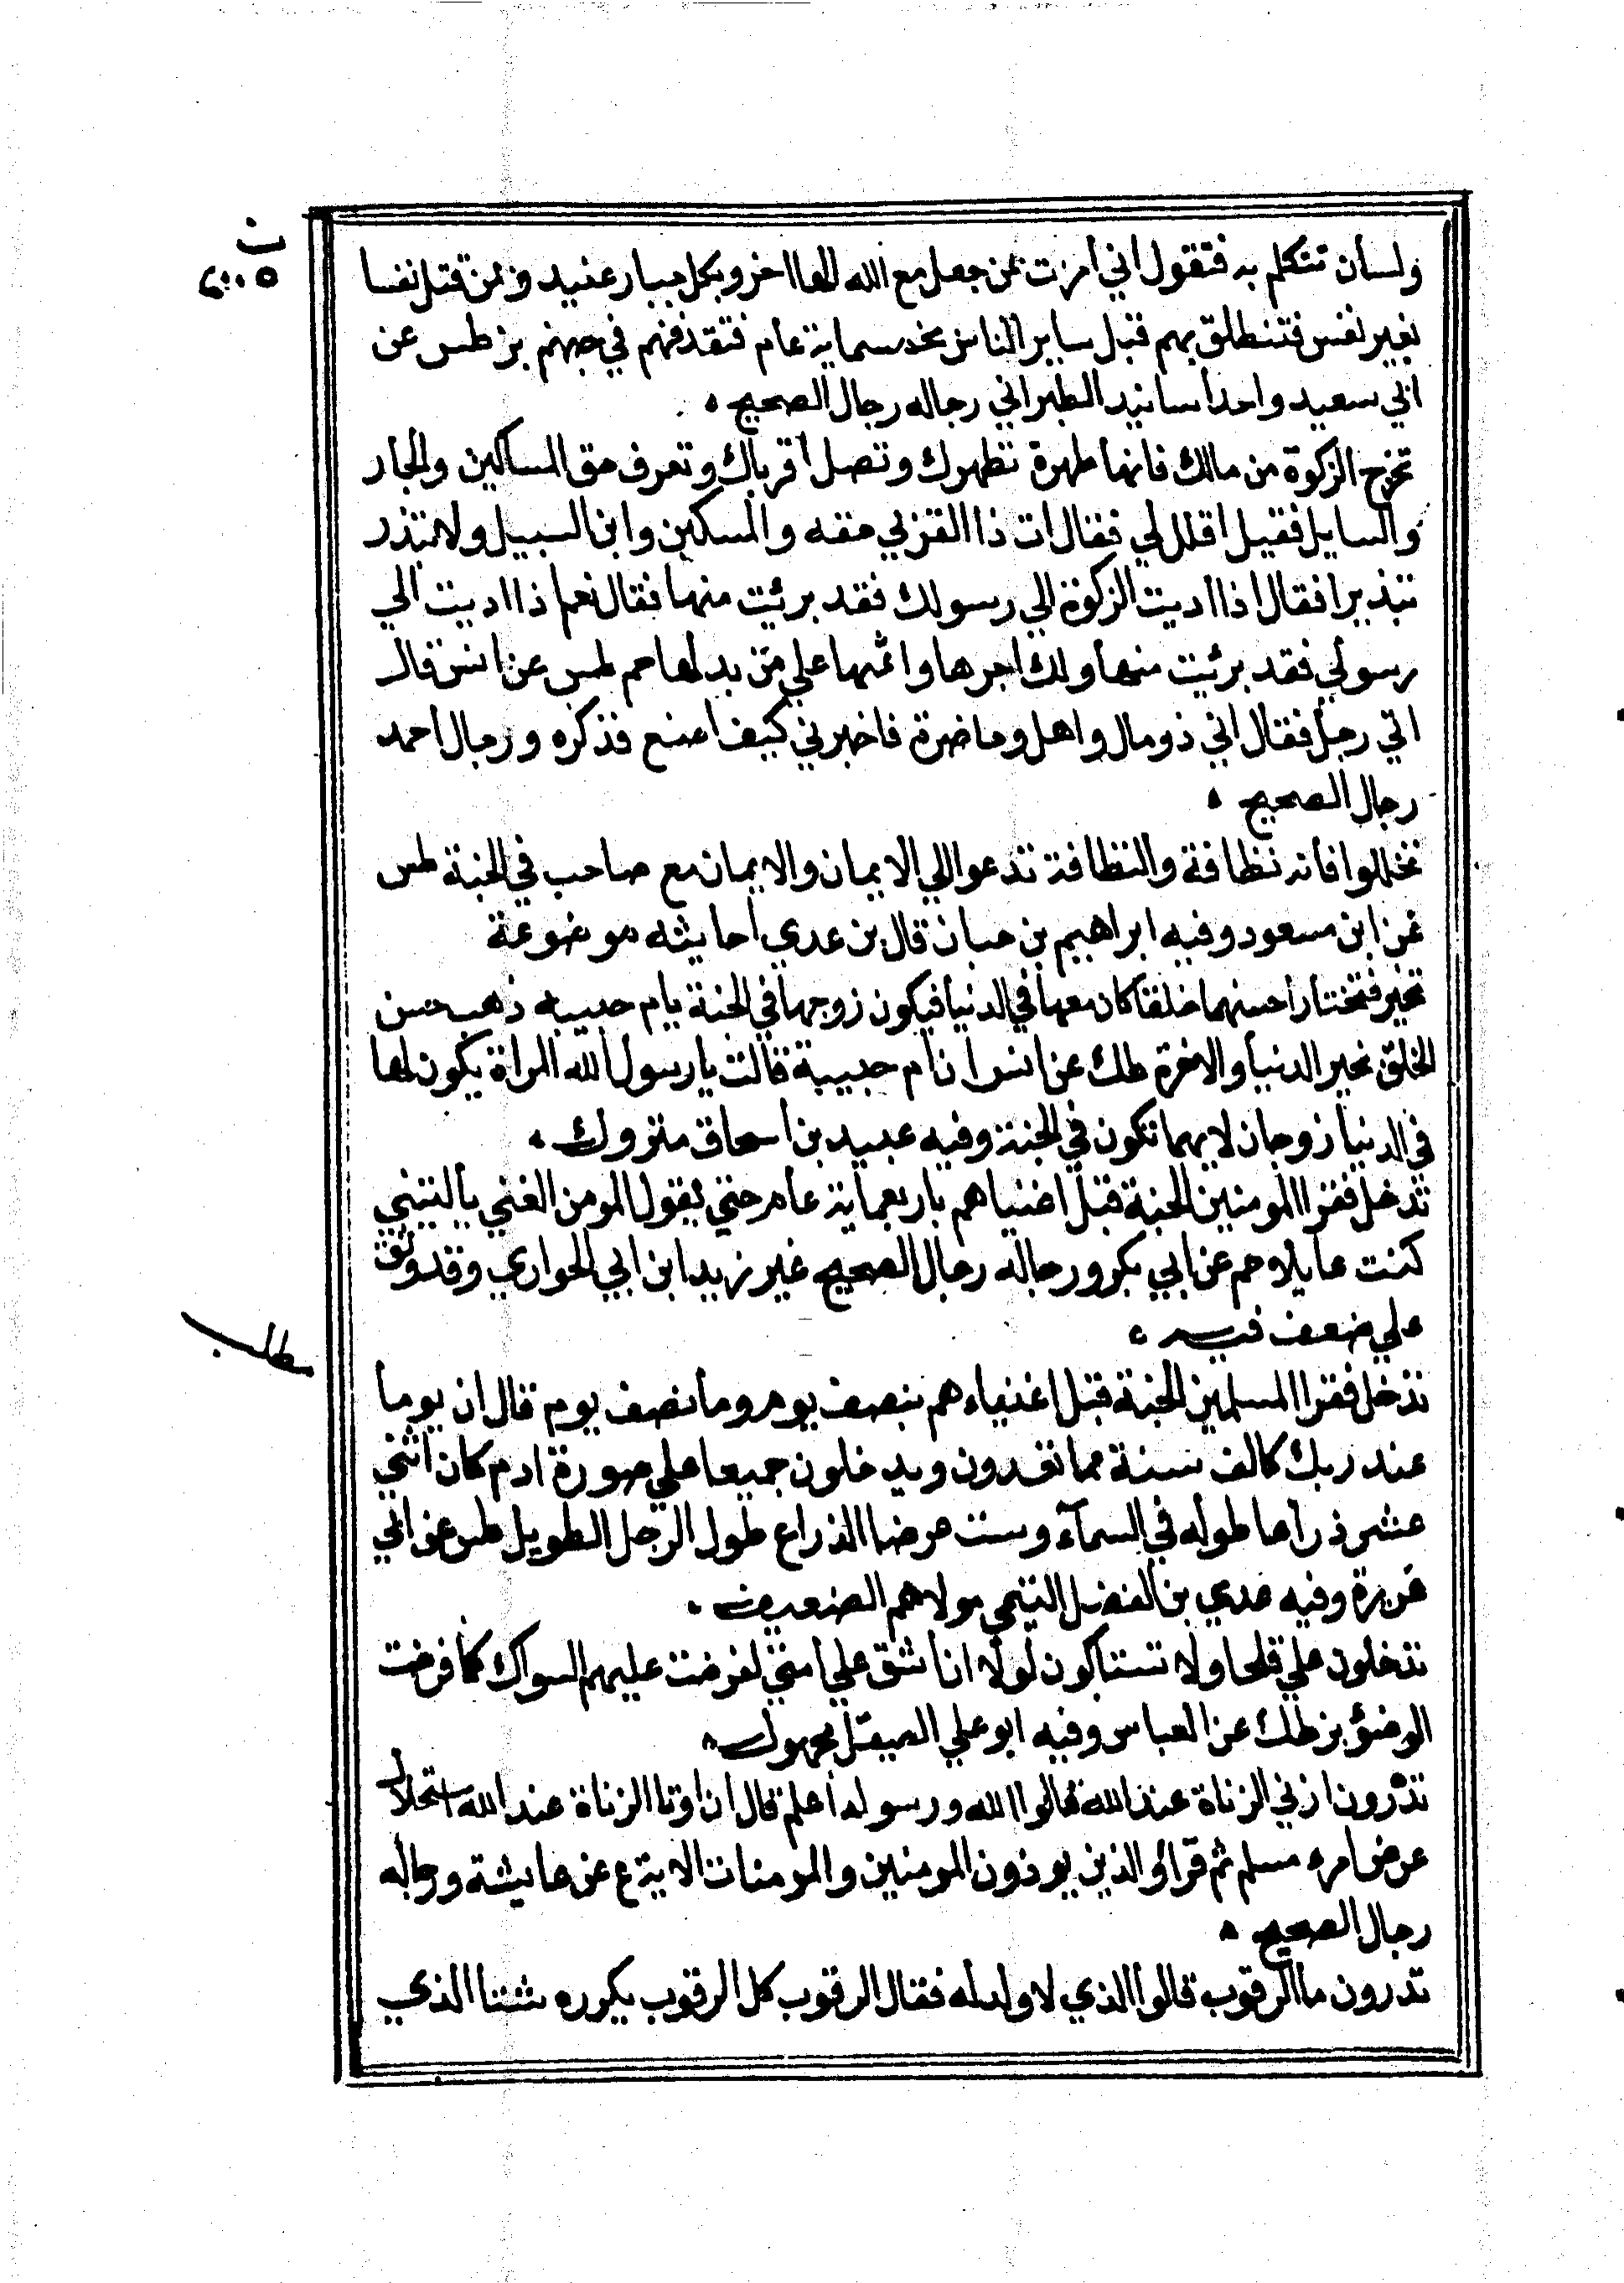 ولسان تتكلم به فتقول اني امرت بمن جعل مع الله الها اخر وبكل جبار عنيد وبمن قتل نفسا
بغير نفس فتنطلق بهم قبل ساير الناس بخمسماية عام فتقذفهم في جهنم بز طس عن
ابي سعيد واحد اسانيد الطبراني رجاله رجال الصحيح
تخرج الزكوة من مالك فانها طهرة تطهرك وتصل اقرباك وتعرف حق المساكين والجار
والسايل فقيل اقلل لي فقال ات ذا القربي حقه والمسكين وابن السبيل ولا تبذر
تبذيرا فقال اذا اديت الزكوة الي رسولك فقد برئت منها فقال نعم اذا اديت الي
رسولي فقد برئت منها ولك اجرها واثمها علي من بدلها حم طس عن انس قال
اتي رجل فقال اني ذو مال واهل وحاضرة فاخبرني كيف اصنع فذكره ورجال احمد
رجال الصحيح
تخللوا فانه نظافة والنظافة تدعوا الي الايمان والايمان مع صاحب في الجنة طس
عن ابن مسعود وفيه ابراهيم بن حبان قال بن عدي احايثه موضوعة
تخير فتختار احسنهما خلقا كان معها في الدنيا فيكون زوجها في الجنة يام حبيبة ذهب حسن
الخلق بخير الدنيا والاخرة طك عن انس ان ام حبيبة قالت يا رسول الله المراة يكون لها
في الدنيا زوجان لايهما تكون في الجنة وفيه عبيد بن اسحاق متروك
تدخل فقرا المومنين الجنة قبل اغنياهم باربعماية عام حتي يقول المومن الغني ياليتني
كنت عايلا حم عن ابي بكر ورجاله رجال الصحيح غير زيد ابن ابي الحواري وقد وثق
علي ضعف فيه
تدخل فقرا المسلمين الجنة قبل اغنياءهم بنصف يوم وما نصف يوم قال ان يوما
عند ربك كالف سنة مما تعدون ويدخلون جميعا علي صورة ادم كان اثني
عشر ذراعا طوله في السمآء وست عرضا الذراع طول الرجل الطويل طس عن ابي
هريرة وفيه عدي بن الفضل التيمي مولاهم الضعيف
تدخلون علي قلحا ولا تستاكون لولا ان اشق علي امتي لفرضت عليهم السواك كما فرضت
الوضؤ بز طك عن العباس وفيه ابو علي الصيقل مجهول
تدرون ازني الزناة عند الله قالوا الله ورسوله اعلم قال ان اوتا الزناة عند الله استحلال
عرض امرء مسلم ثم قرا والذين يوذون المومنين والمومنات الاية ع عن عايشة ورجاله
رجال الصحيح
تدرون ما الرقوب قالوا الذي لا ولد له فقال الرقوب كل الرقوب يكرره ثلثا الذي
مطلب